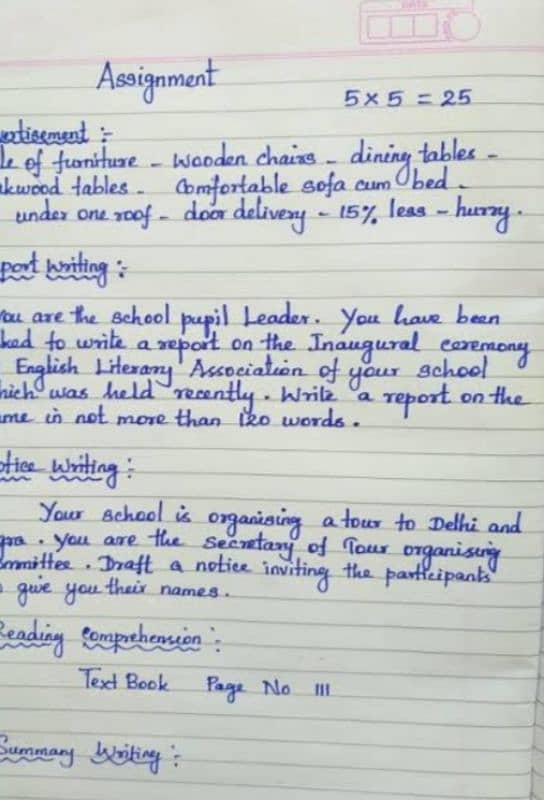 DATE
Assignment
5 x 5 = 25
ertisement :-
le of furniture - Wooden chairs - dining tables -
akwood tables - Comfortable sofa cum bed -
under one roof - door delivery - 15% less - hurry.
port Writing :-
you are the school pupil Leader. You have been
ked to write a report on the Inaugural ceremony
English Literary Association of your school
hich was held recently. Write a report on the
ame in not more than 120 words.
otice Writing :-
Your school is organising a tour to Delhi and
gra. you are the Secretary of Tour organising
ommittee. Draft a notice inviting the participants
o give you their names.
Reading Comprehension :-
Text Book Page No 111
Summary Writing :-